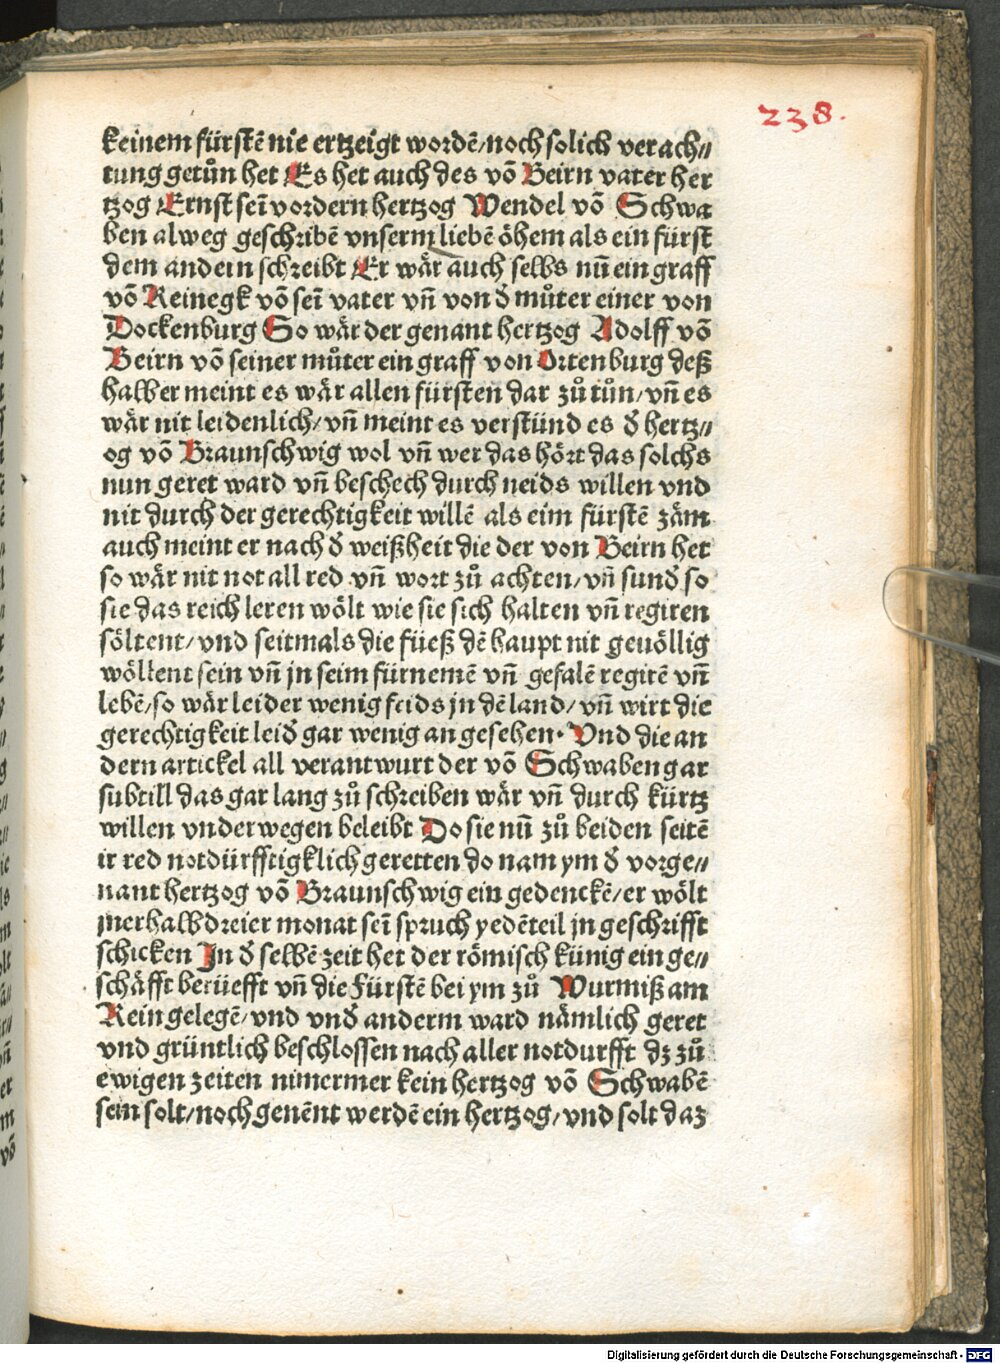 238.
keinem fürstē nie ertzeigt wordē/noch solich verach⸗
tung getůn het Es het auch des vō Beirn vater her
tzog Ernst seī vordern hertzog Wendel vō Schwa
ben alweg geschribē vnserm liebē öhem als ein fürst
dem andern schreibt Er wär auch selbs nū ein graff
vō Reinegk vō seī vater vñ von đ můter einer von
Dockenburg So wär der genant hertzog Adolff vō
Beirn vō seiner můter ein graff von Ortenburg deß
halber meint es wär allen fürsten dar zů tůn/vñ es
wär nit leidenlich/vñ meint es verstünd es đ hertz⸗
og vō Braunschwig wol vñ wer das hört das solchs
nun geret ward vñ beschech durch neids willen vnd
nit durch der gerechtigkeit willē als eim fürstē zäm
auch meint er nach đ weißheit die der von Beirn het
so wär nit not all red vñ wort zů achten/vñ sunđ so
sie das reich leren wölt wie sie sich halten vñ regiren
söltent/vnd seitmals die füeß dē haupt nit geuöllig
wöltent sein vñ jn seim fürnemē vñ gefalē regirē vñ
lebē/so wär leider wenig frids jn dē land/vñ wirt die
gerechtigkeit leiđ gar wenig an gesehen· Vnd die an
dern artickel all verantwurt der vō Schwaben gar
subtill das gar lang zů schreiben wär vñ durch kürtz
willen vnderwegen beleibt Do sie nū zů beiden seitē
ir red notdürfftigklich geretten do nam ym đ vorge⸗
nant hertzog vō Braunschwig ein gedenckē/er wölt
jnerhalb dreier monat seī spruch yedēteil jn geschrifft
schicken In đ selbē zeit het der römisch künig ein ge⸗
schäfft berüefft vñ die fürstē bei ym zů Wurmiß am
Rein gelegē/vnd vnđ anderm ward nämlich geret
vnd grüntlich beschlossen nach aller notdurfft dz zů
ewigen zeiten nimermer kein hertzog vō Schwabē
sein solt/noch genēnt werdē ein hertzog/vnd solt daz
Digitalisierung gefördert durch die Deutsche Forschungsgemeinschaft - DFG